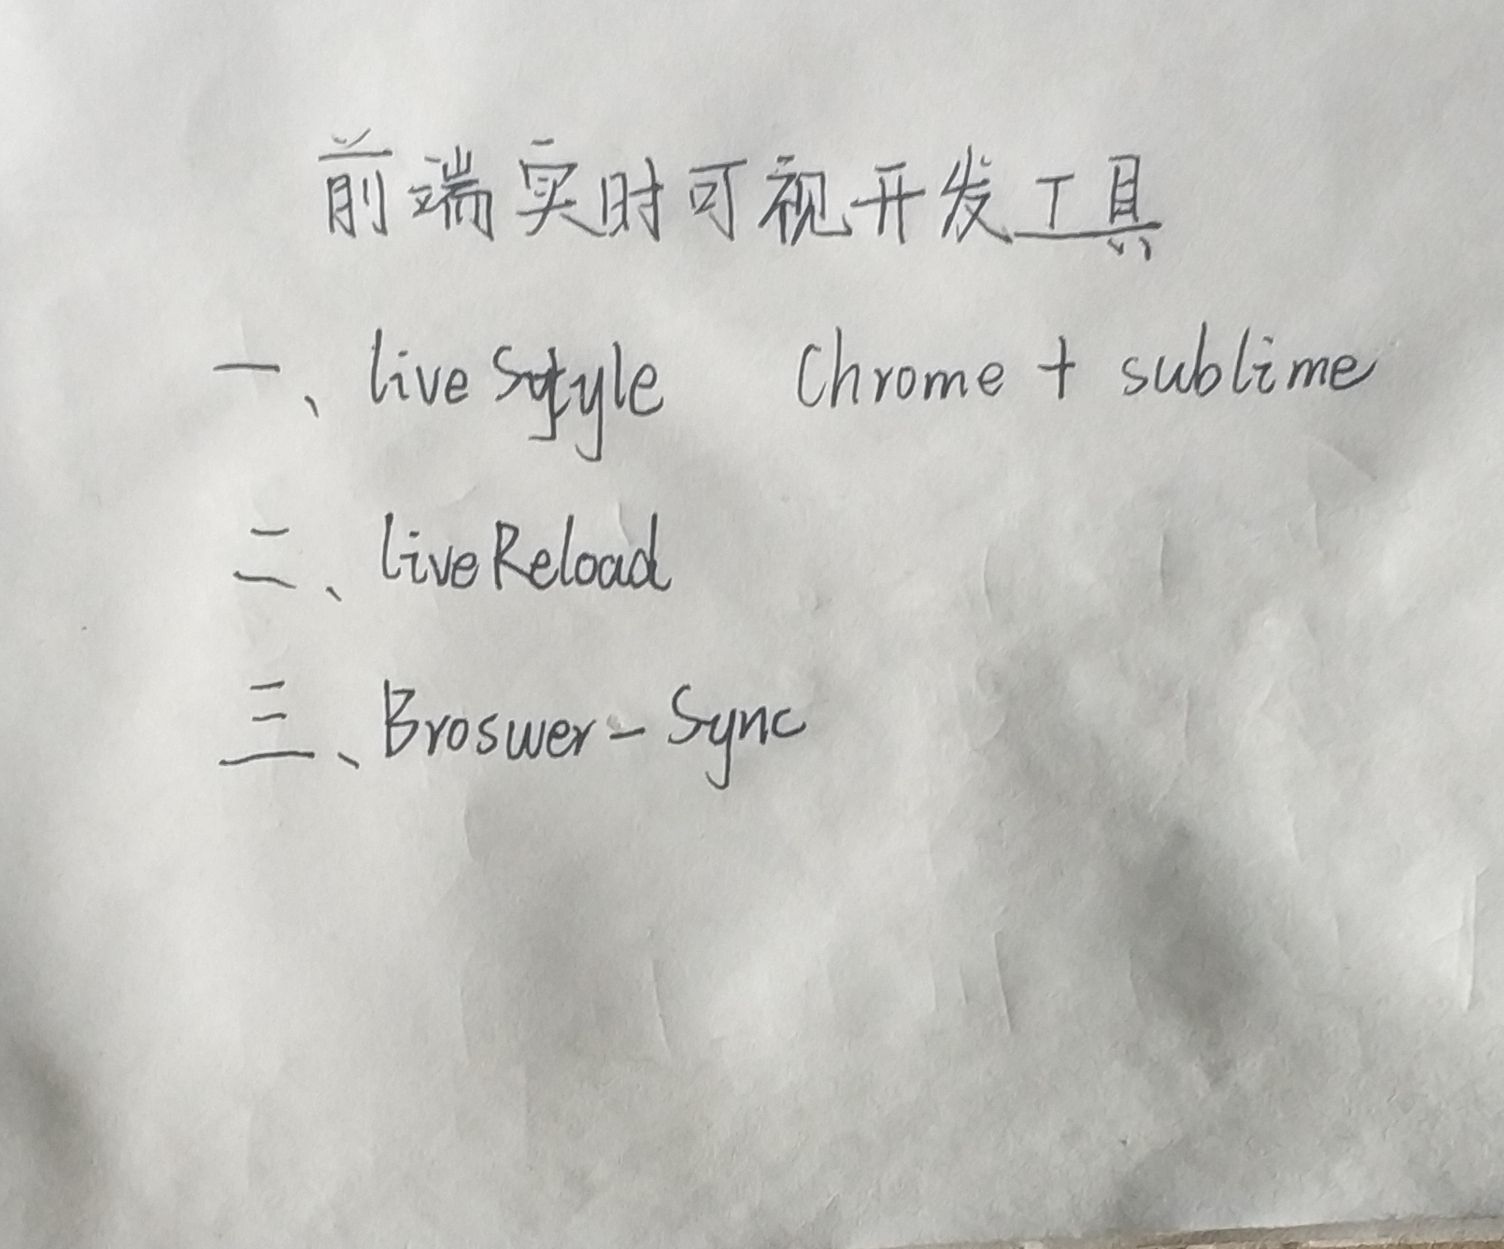 前端实时可视开发工具
一、liveStyle Chrome + sublime
二、liveReload
三、Broswer-Sync